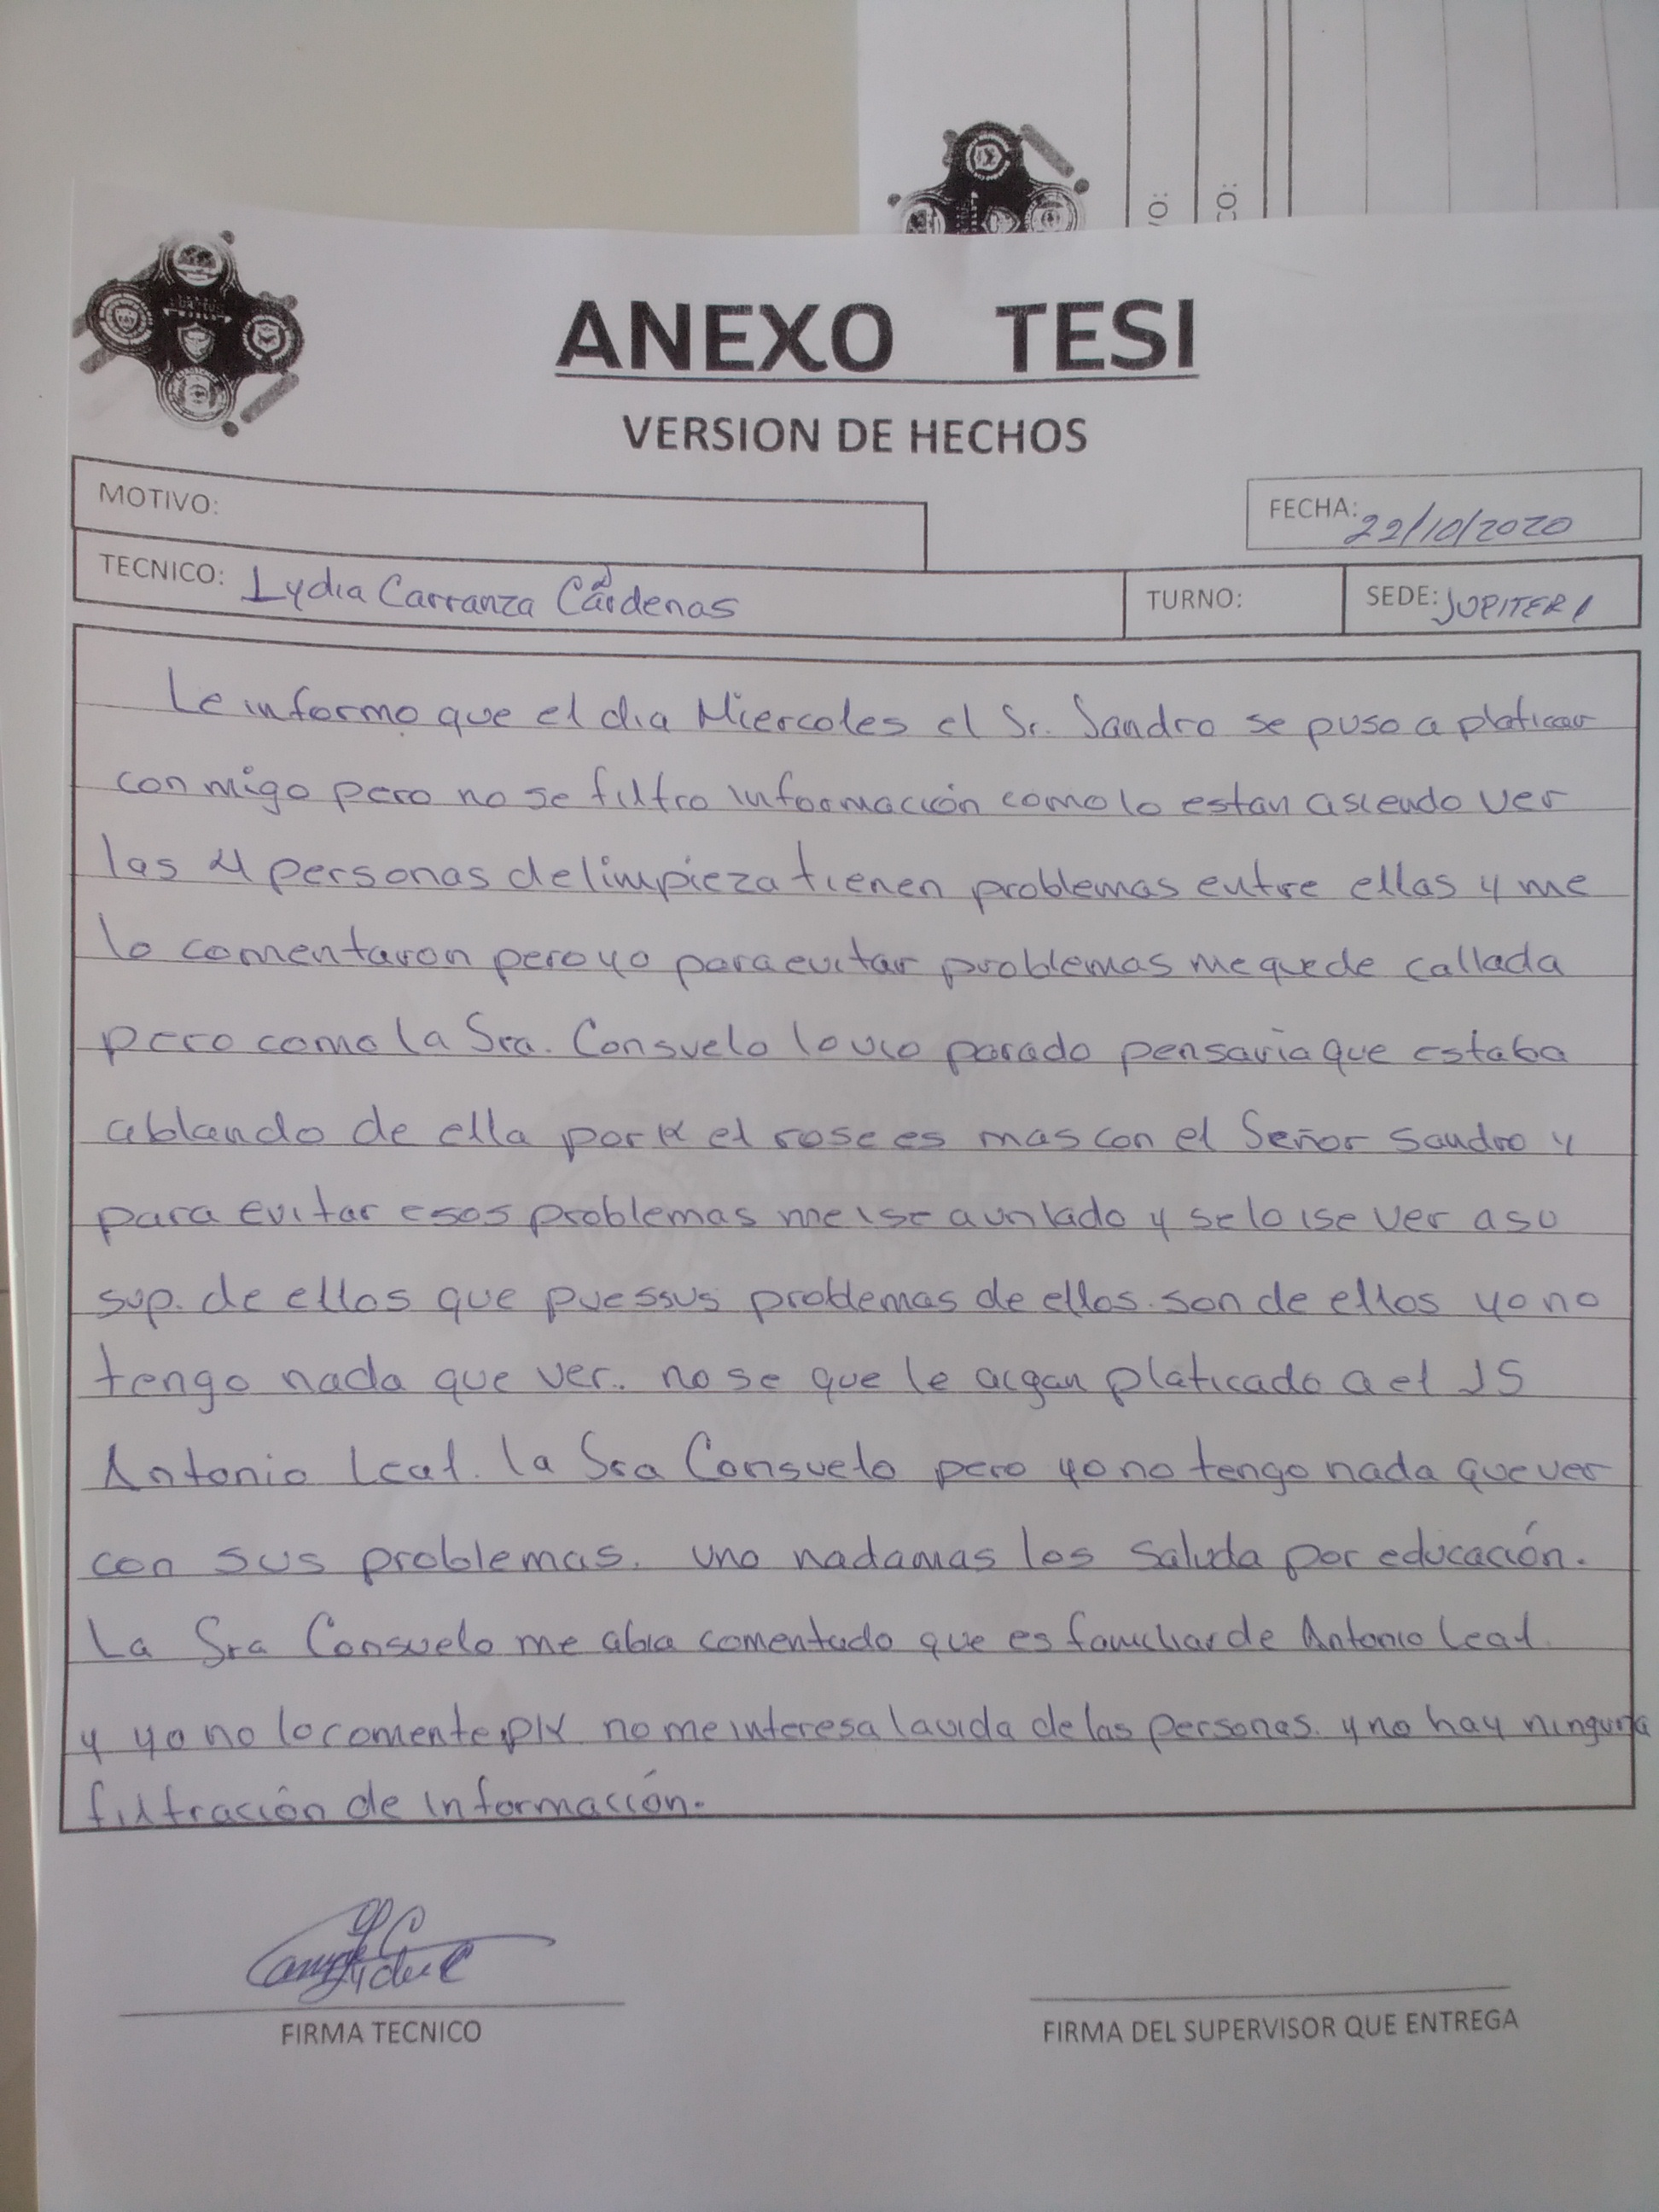 VO:
CO:
ANEXO TESI
VERSION DE HECHOS
MOTIVO:
FECHA: 22/10/2020
TECNICO: Lydia Carranza Cárdenas
TURNO:
SEDE: JUPITER 1
Le informo que el dia Miercoles el Sr. Sandro se puso a platicar
con migo pero no se filtro información como lo estan asiendo ver
las 4 personas de limpieza tienen problemas entre ellas y me
lo comentaron pero yo para evitar problemas me quede callada
pero como la Sra. Consuelo lo vio parado pensaria que estaba
ablando de ella por k el rose es mas con el Señor Sandro y
para evitar esos problemas me ise a un lado y se lo ise ver a su
sup. de ellos que pues sus problemas de ellos son de ellos yo no
tengo nada que ver. no se que le aigan platicado a el JS
Antonio Leal. la Sra Consuelo pero yo no tengo nada que ver
con sus problemas. uno nadamas los saluda por educación.
La Sra Consuelo me abia comentado que es familiar de Antonio Leal
y yo no lo comente pk no me interesa la vida de las personas. y no hay ninguna
filtración de información.
FIRMA TECNICO
FIRMA DEL SUPERVISOR QUE ENTREGA